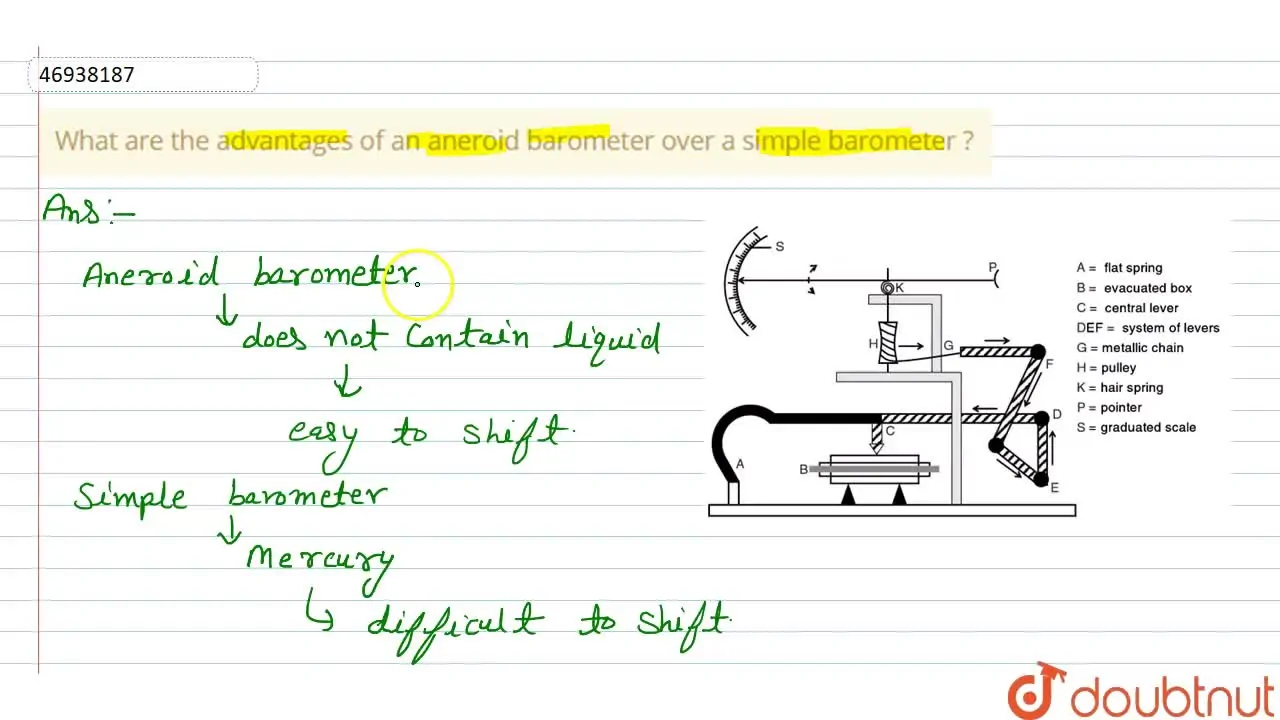 46938187
What are the advantages of an aneroid barometer over a simple barometer ?
Ans:-
Aneroid barometer
does not contain liquid
easy to shift.
Simple barometer
Mercury
difficult to shift.
S
P
K
H
G
F
D
C
A
B
E
A = flat spring
B = evacuated box
C = central lever
DEF = system of levers
G = metallic chain
H = pulley
K = hair spring
P = pointer
S = graduated scale
doubtnut